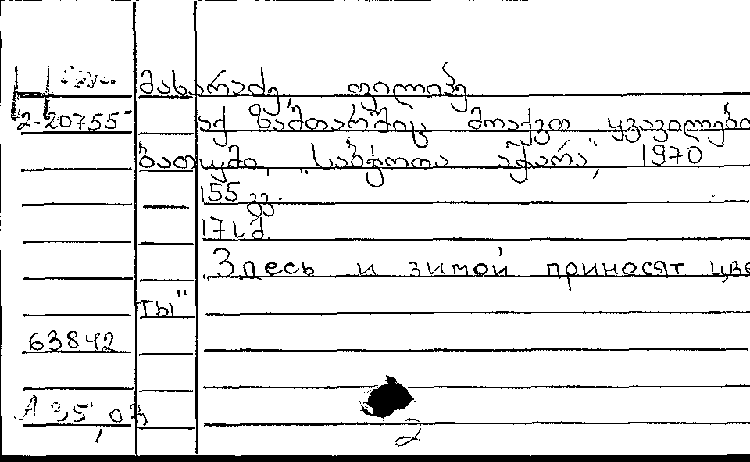 მახარაძე, ფილიპე
2-20755
აქ ზამთარშიც მოაქვთ ყვავილები
ბათუმი, "საბჭოთა აჭარა", 1970
155 გვ.
17 სმ.
"Здесь и зимой приносят цве
ты"
63842
2